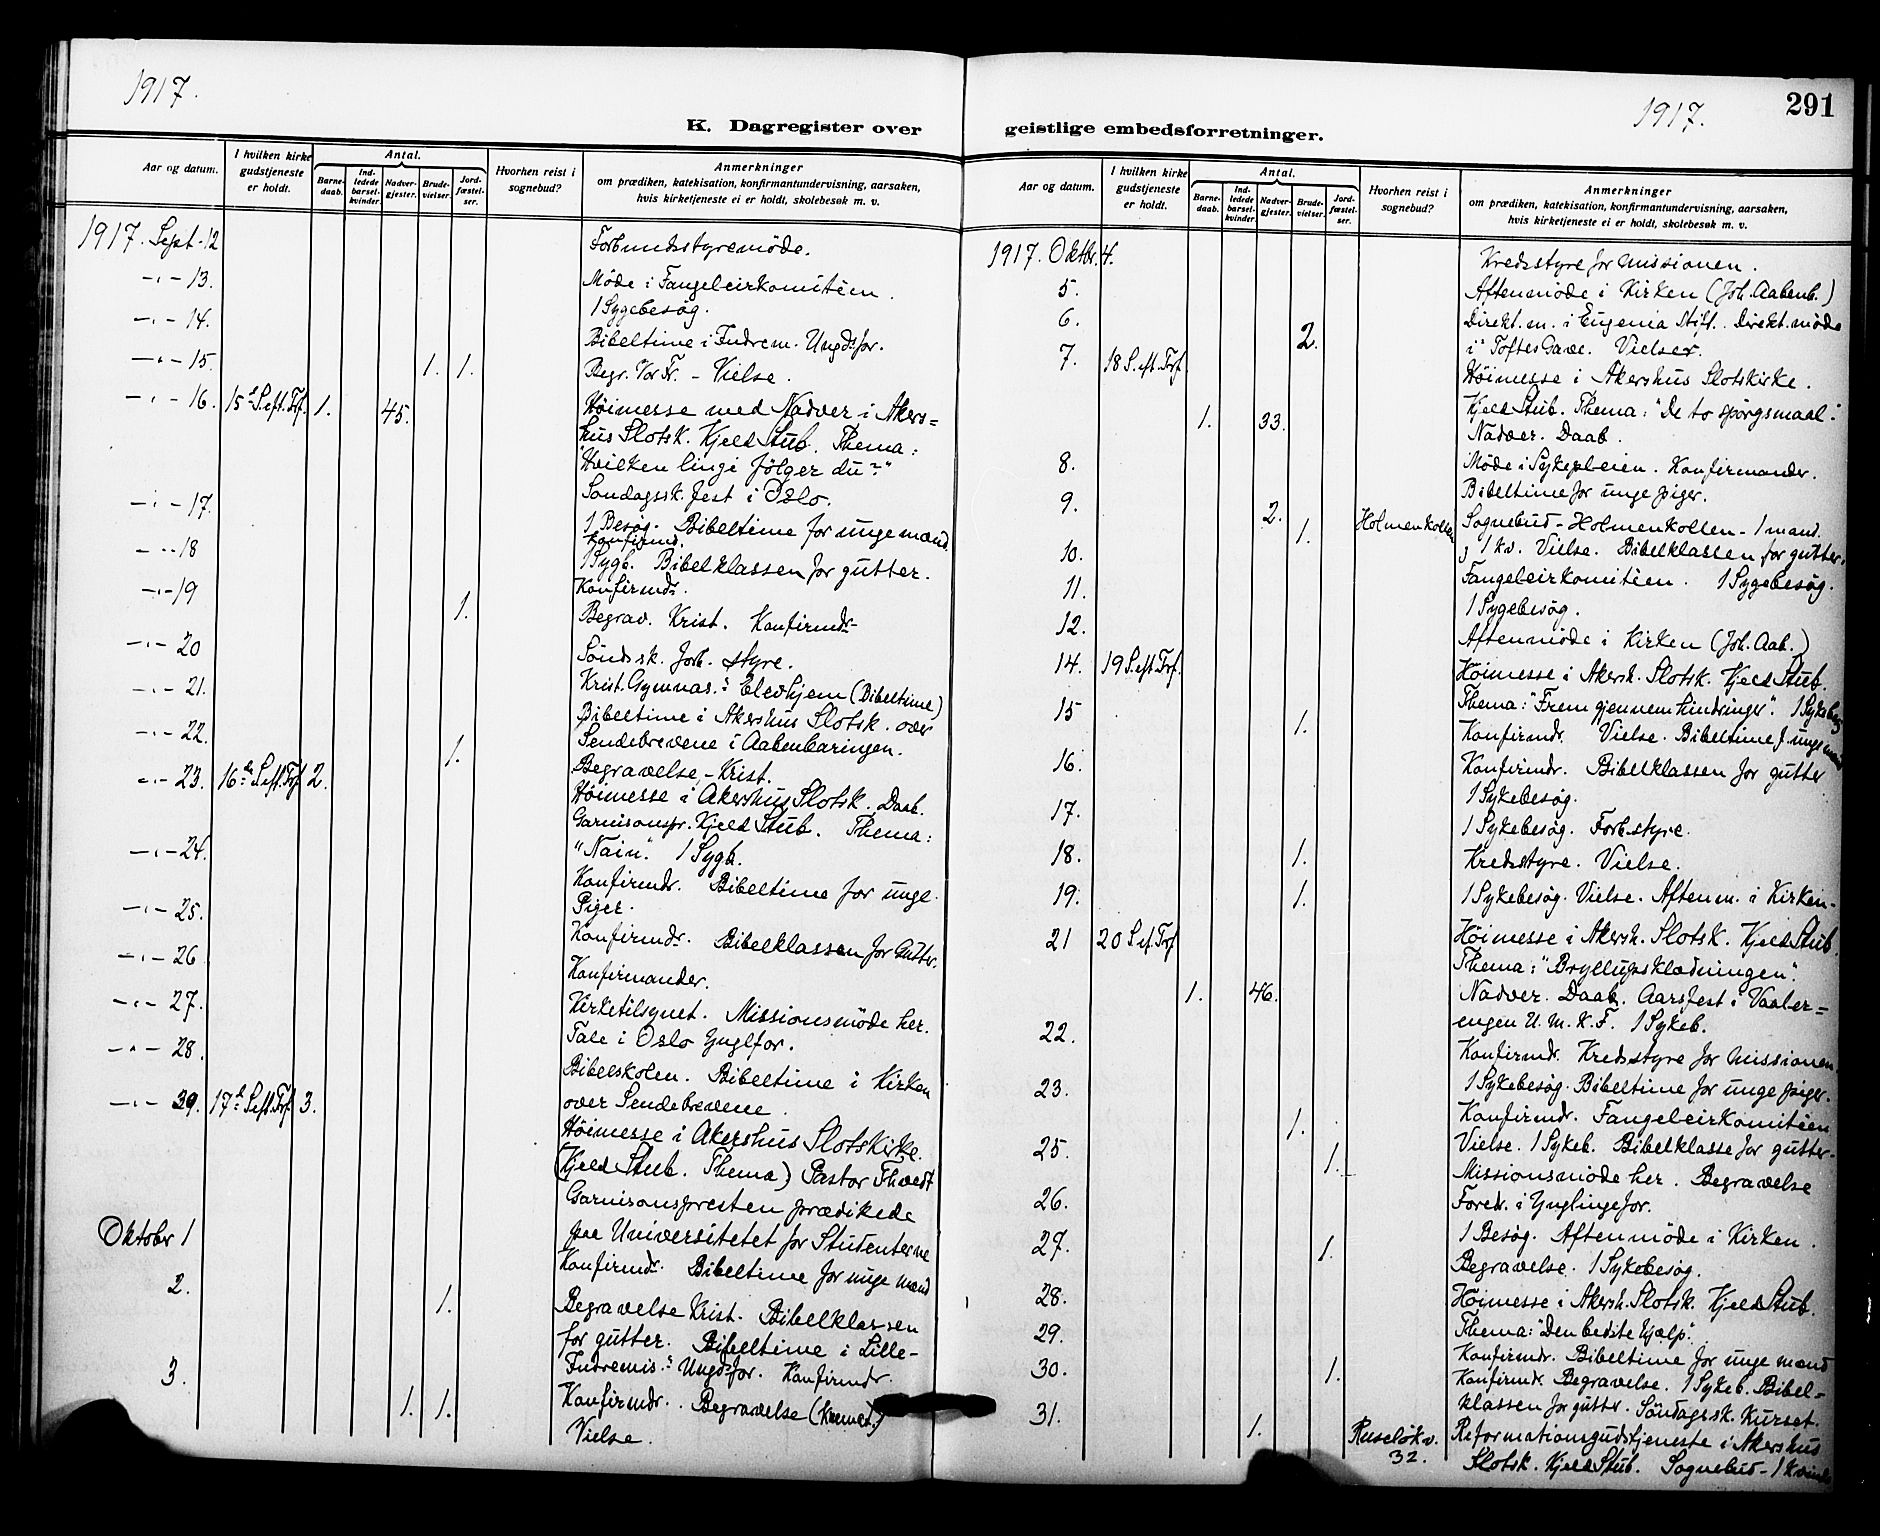 1917.
K. Dagregister over
Aar og datum.
I hvilken kirke gudstjeneste er holdt.
Antal.
Barne-daab.
Ind-ledede barsel-kvinder.
Nadver-gjester.
Brude-vielser.
Jord-fæstel-ser.
Hvorhen reist i sognebud?
Anmerkninger
om prædiken, katekisation, konfirmantundervisning, aarsaken,
hvis kirketjeneste ei er holdt, skolebesøk m. v.
1917. Sept. 12 Forbundsstyremöde.
-"- 13. Möde i Fangeleirkomitéen.
-"- 14. 1 Sygebesög.
Bibeltime i Indrem. Ungdsfor.
-"- 15. 1. 1. Begr. Vor Fr. - Vielse.
-"- 16. 15d S. eft. Trf. 1. 45. Höimesse med Nadver i Akers=
hus Slotsk. Kjeld Stub. Thema:
"Hvilken linje fölger du?"
Söndagssk. fest i Oslo.
-"- 17. 1 Besög. Bibeltime for unge mænd.
Konfirmd.
-"- 18 1 Sygb. Bibelklassen for gutter.
Konfirmdr.
-"- 19 1. Begrav. Krist. Konfirmdr.
-"- 20 Söndssk. forb. styre.
-"- 21. Krist. Gymnas.s Elevhjem (Bibeltime)
Bibeltime i Akershus Slotsk. over
-"- 22. 1. Sendebrevene i Aabenbaringen.
Begravelse - Krist.
-"- 23. 16de S. eft. Trf. 2. Höimesse i Akershus Slotsk. Daab.
Garnisonspr. Kjeld Stub. Thema:
"Nain". 1 Sygb.
-"- 24. Konfirmdr. Bibeltime for unge
Piger.
-"- 25. Konfirmdr. Bibelklassen for Gutter.
-"- 26. Konfirmander.
-"- 27. Kirketilsynet. Missionsmöde her.
Tale i Oslo Ynglfor.
-"- 28. Bibelskolen. Bibeltime i Kirken
over Sendebrevene.
-"- 30. 17d S. eft. Trf. 3. Höimesse i Akershus Slotskirke.
(Kjeld Stub. Thema) Pastor Thvedt
Garnisonspresten prædikede
paa Universitetet for Studenterne
Oktober 1 Konfirmdr. Bibeltime for unge mænd
2. 1. Begravelse Krist. Bibelklassen
for gutter. Bibeltime i Lille-
Indremis.s Ungdsfor. Konfirmdr.
3. 1. 1. Konfirmdr. Begravelse (Kremat.)
Vielse.
1917.
291
geistlige embedsforretninger.
Aar og datum.
I hvilken kirke gudstjeneste er holdt.
Antal.
Barne-daab.
Ind-ledede barsel-kvinder.
Nadver-gjester.
Brude-vielser.
Jord-fæstel-ser.
Hvorhen reist i sognebud?
Anmerkninger
om prædiken, katekisation, konfirmantundervisning, aarsaken,
hvis kirketjeneste ei er holdt, skolebesøk m. v.
1917. Oktbr. 4. Kredsstyre for missionen.
5. Aftenmöde i Kirken (Joh. Aabenb.)
6. 2. Direkt. m. i Eugenia Stift. Direkt. möde
i Toftes Gave. Vielser.
7. 18 S. eft. Trf. Höimesse i Akershus Slotskirke.
1. 33. Kjeld Stub. Thema: "De to spörgsmaal".
Nadver. Daab.
8. Möde i Sykepleien. Konfirmander.
Bibeltime for unge piger.
9. 2. 1. Holmenkollen Sognebud - Holmenkollen - 1 mand.
& 1 kv. Vielse. Bibelklassen for gutter.
10. Fangeleirkomitéen. 1 Sygebesög.
11. 1 Sygebesög.
12. Aftenmöde i Kirken (Joh. Aab.)
14. 19 S. eft. Trf. Höimesse i Akersh. Slotsk. Kjeld Stub.
Thema: "Frem gjennem hindringer". 1 Sykebesög
15 1. Konfirmdr. Vielse. Bibeltime f. unge mænd
16. Konfirmdr. Bibelklassen for gutter
1 Sykebesög.
17. 1 Sykebesög. Forb. styre.
18. 1. Kredsstyre. Vielse.
19. 1. 1 Sykebesög. Vielse. Aftenm. i Kirken.
21 20 S. ef. Trf. Höimesse i Akersh. Slotsk. Kjeld Stub.
Thema: "Bryllupsklædningen"
1. 46. Nadver. Daab. Aarsfest i Vaaler=
engen U. M. K. F. 1 Sykeb.
22. Konfirmdr. Kredsstyre for missionen.
1 Sykebesög. Bibeltime for unge piger.
23. 1. Konfirmdr. Fangeleirkomitéen
Vielse. 1 Sykeb. Bibelklasse for gutter.
25. 1. Missionsmöde her. Begravelse
Foredr. i Ynglingefor.
26. 1 Besög. Aftenmöde i Kirken.
27. 1. Begravelse. 1 Sykebesög.
28. Höimesse i Akersh. Slotsk. Kjeld Stub.
Thema: "Den bedste hjælp".
29. Konfirmdr. Bibeltime for unge mænd
30. 1. Konfirmdr. Begravelse. 1 Sykeb. Bibel-
klassen for gutter. Söndagssk. Kurset.
31. 1. Ruselökv. 32. Reformationsgudstjeneste i Akershus
Slotsk. Kjeld Stub. Sognebud - 1 kvinde